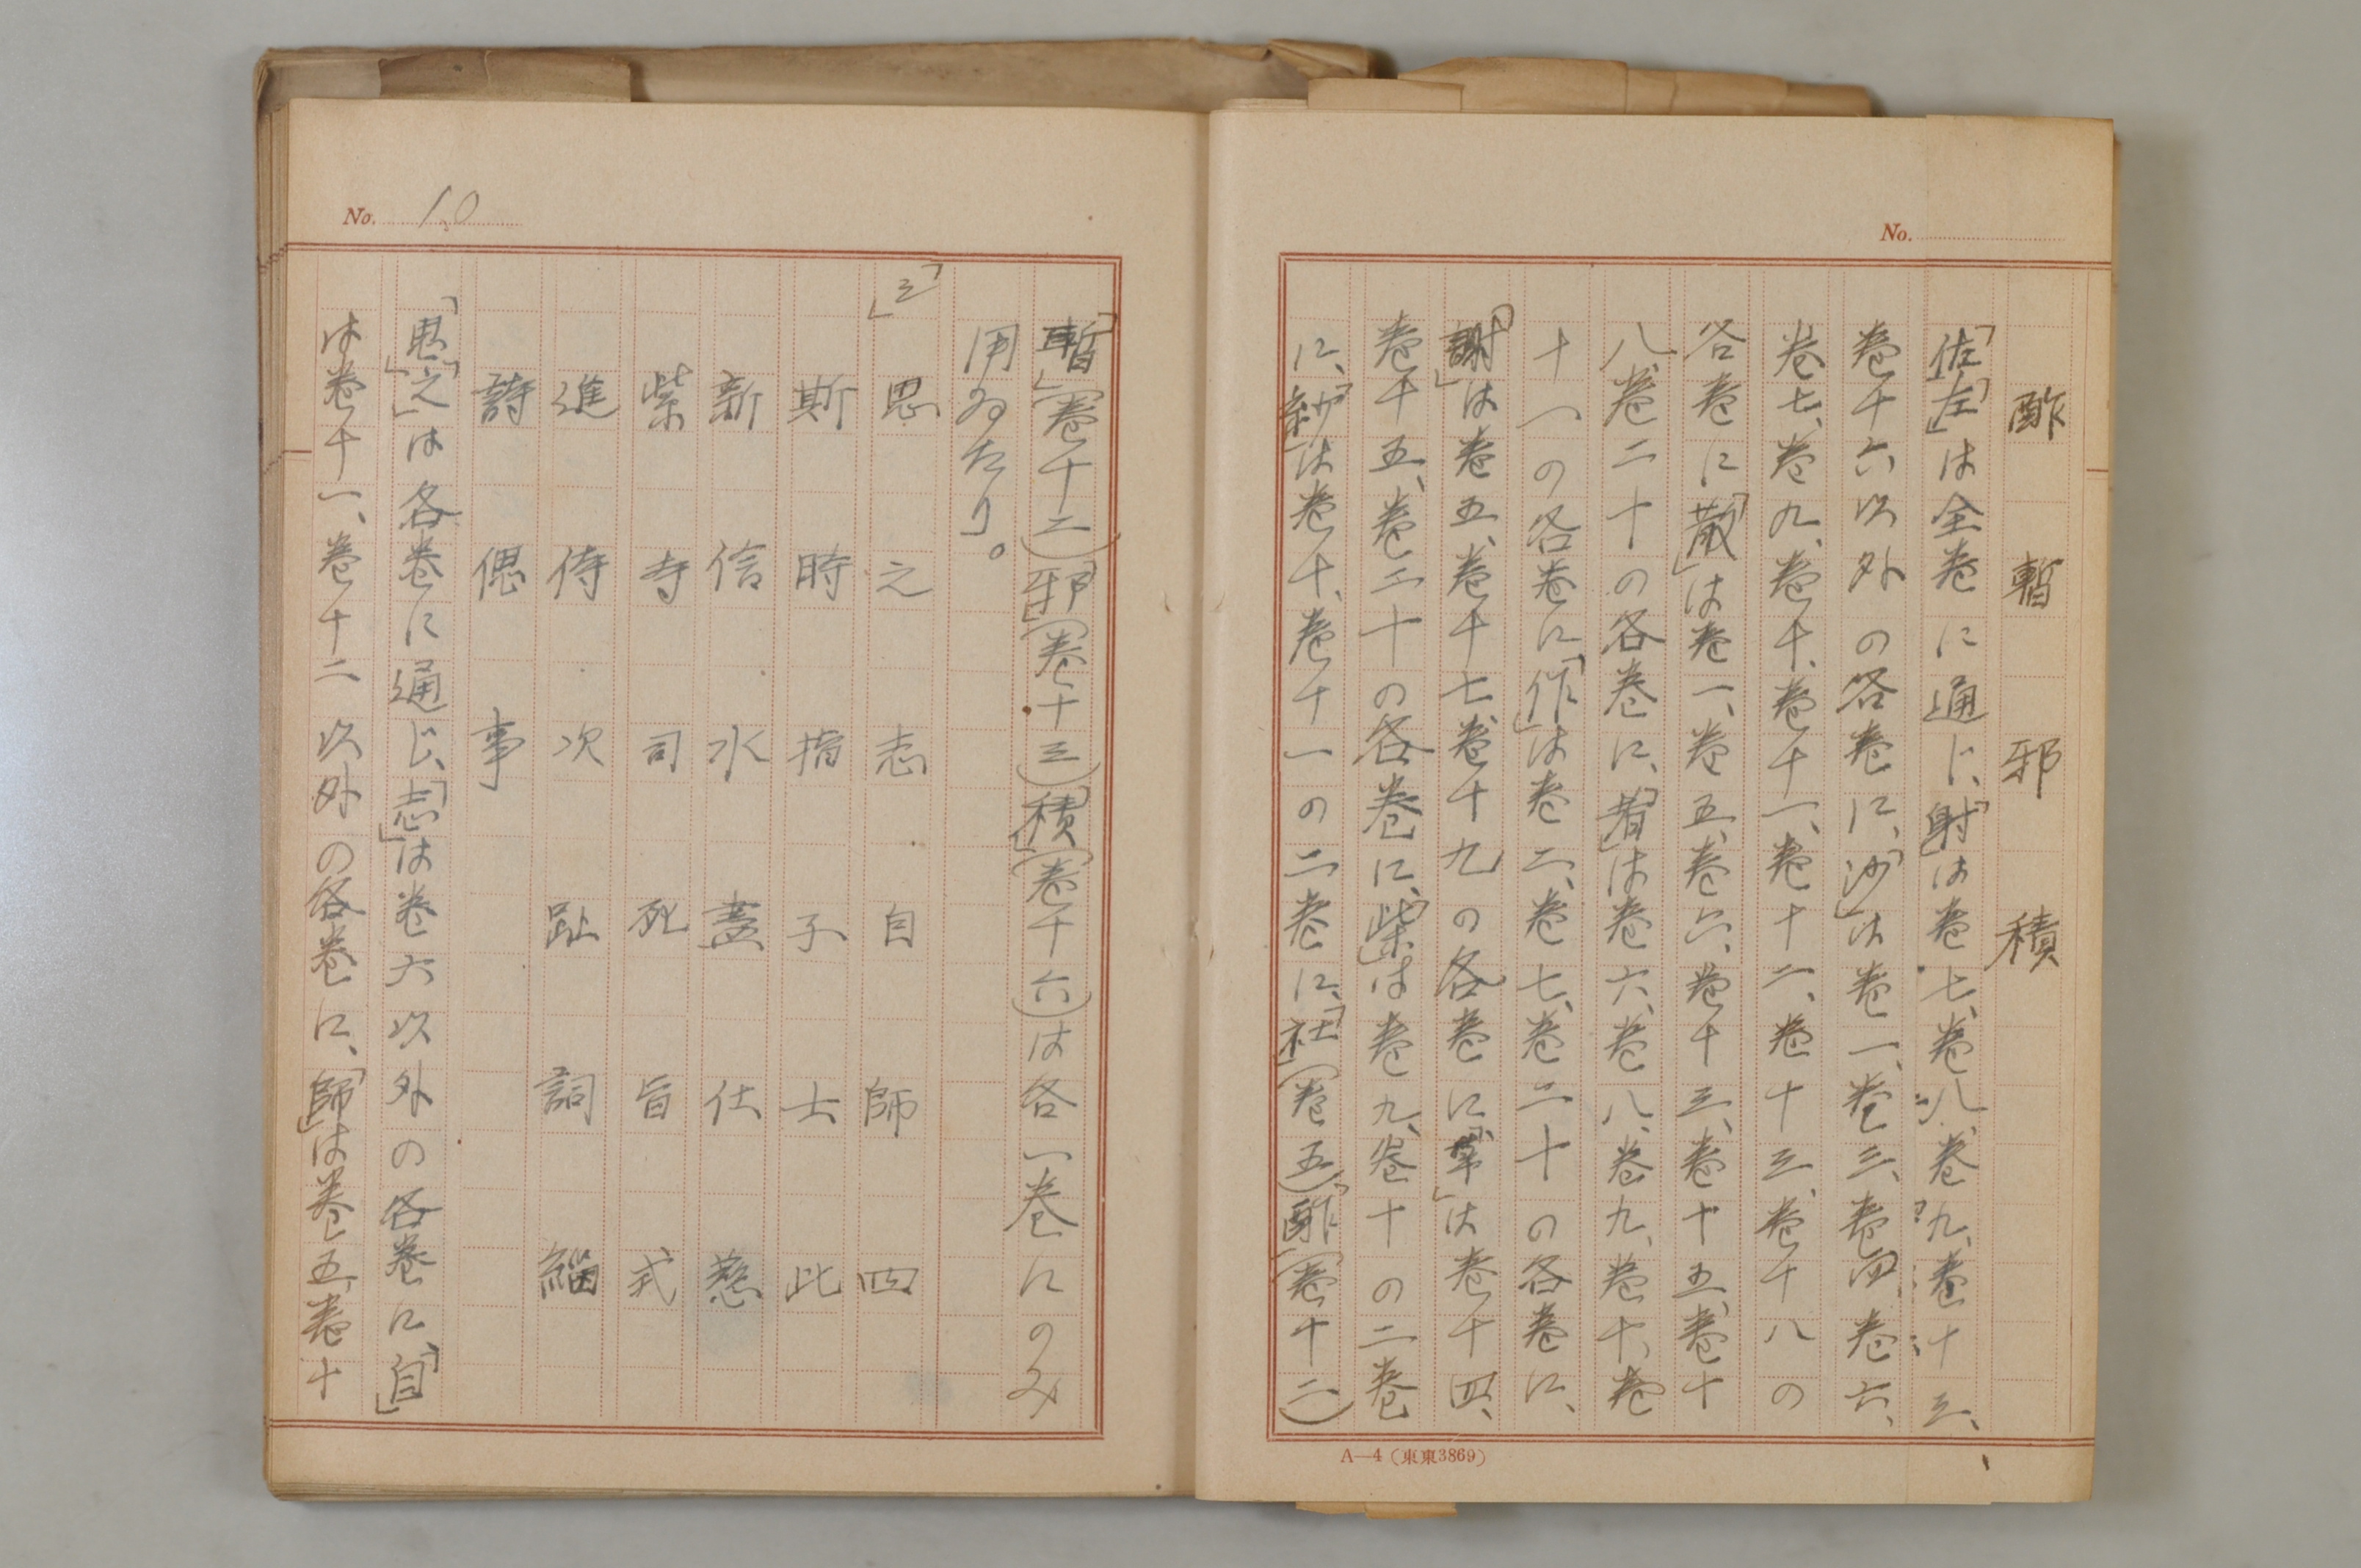 No.
酢 暫 邪 積
「佐」「左」は全巻に通じ、「射」は巻七、巻八、巻九、巻十三、
巻十六以外の各巻に、「沙」は巻一、巻三、巻四、巻六、
巻七、巻九、巻十、巻十一、巻十二、巻十三、巻十八の
各巻に「散」は巻一、巻五、巻六、巻十三、巻十五、巻十
八、巻二十の各巻に、「者」は巻六、巻八、巻九、巻十、巻
十一の各巻に、「作」は巻二、巻七、巻二十の各巻に、
「謝」は巻五、巻十七、巻十九の各巻に、「草」は巻十四、
巻十五、巻二十の各巻に、「柴」は巻九、巻十の二巻
に、「紗」は巻十、巻十一の二巻に、「社」(巻五)、「酢」(巻十二)
A—4(東東3869)
No. 10
「暫」(巻十二)「邪」(巻十三)「積」(巻十六)は各一巻にのみ
用ゐたり。
「シ」 思 之 志 自 師 四
斯 時 指 子 士 此
新 信 水 蓋 仕 慈
紫 寺 司 死 旨 式
進 侍 次 趾 詞 緇
詩 偲 事
「思」「之」は各巻に通じ、「志」は巻六以外の各巻に、「自」
は巻十一、巻十二以外の各巻に、「師」は巻五、巻十